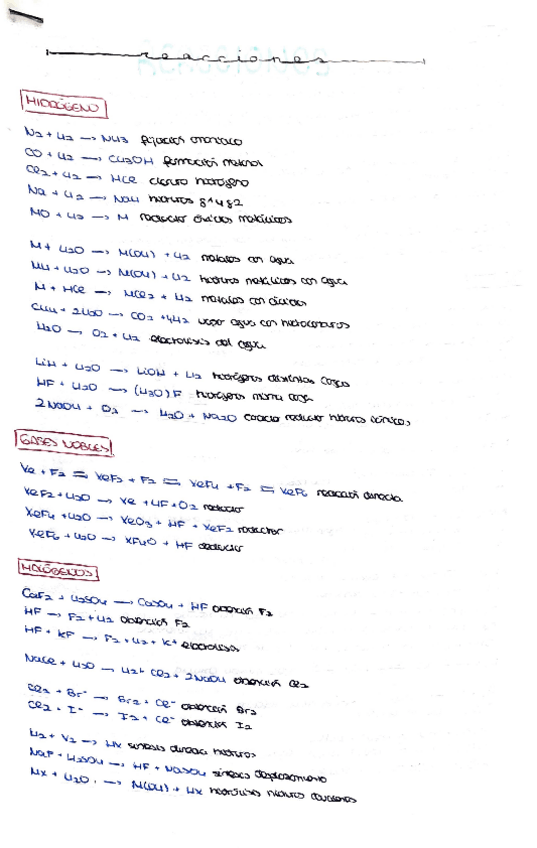 reacciones
HIDRÓGENO
N2 + H2 → NH3 fijación amoniaco
CO + H2 → CH3OH formación metanol
Cl2 + H2 → HCl cloruro hidrógeno
Na + H2 → NaH hidruros g1 y g2
MO + H2 → M reductor óxidos metálicos
M + H2O → M(OH) + H2 metales con agua
MH + H2O → M(OH) + H2 hidruros metálicos con agua
M + HCl → MCl2 + H2 metales con ácidos
CH4 + 2H2O → CO2 + 4H2 vapor agua con hidrocarburos
H2O → O2 + H2 electrolisis del agua
LiH + H2O → LiOH + H2 hidrógenos distintas cargas
HF + H2O → (H3O)F hidrógenos misma carga
2NaOH + O2 → H2O + Na2O carácter reductor hidruros iónicos
GASES NOBLES
Xe + F2 = XeF2 + F2 = XeF4 + F2 = XeF6 reacción directa
XeF2 + H2O → Xe + HF + O2 reductor
XeF4 + H2O → XeO3 + HF + XeF2 reductor
XeF6 + H2O → XF4O + HF reductor
HALÓGENOS
CaF2 + H2SO4 → CaSO4 + HF obtención F2
HF → F2 + H2 obtención F2
HF + KF → F2 + H2 + K+ electrolisis
NaCl + H2O → H2 + Cl2 + 2NaOH obtención Cl2
Cl2 + Br- → Br2 + Cl- obtención Br2
Cl2 + I- → I2 + Cl- obtención I2
H2 + X2 → HX síntesis directa hidruros
NaF + H2SO4 → HF + NaSO4 síntesis desplazamiento
MX + H2O → M(OH) + HX hidrólisis